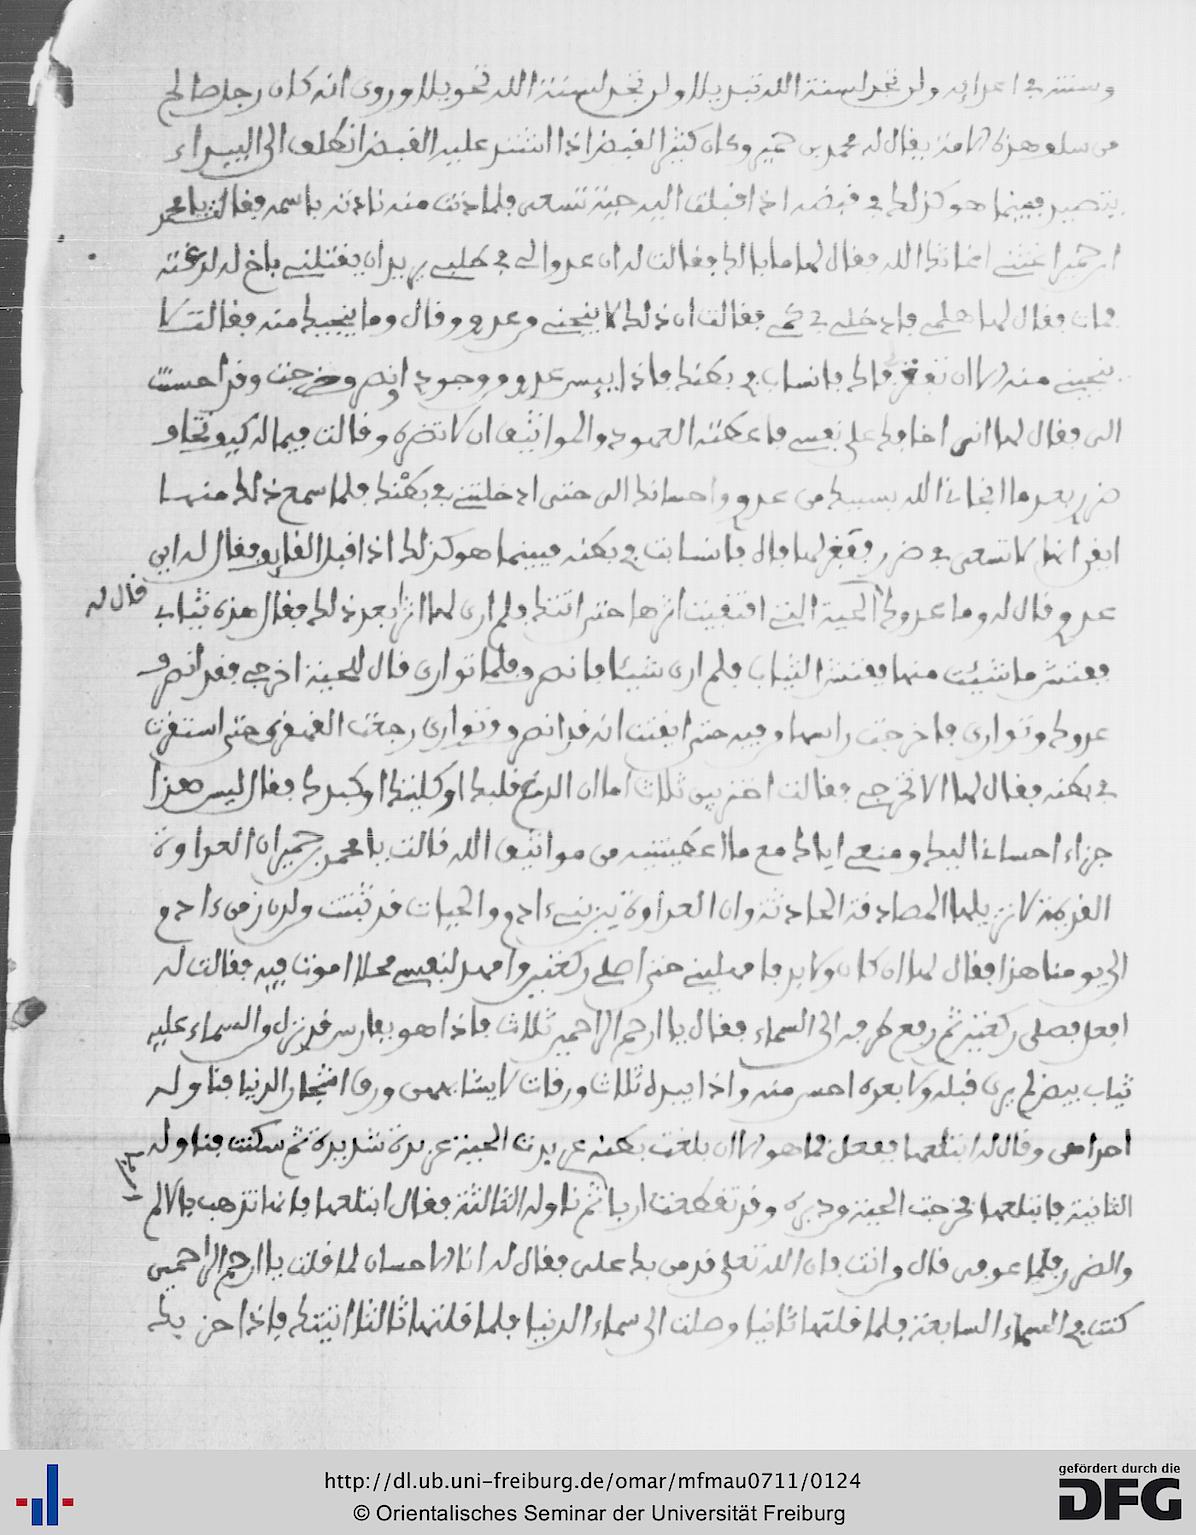 وسنته في اعدايه ولن تجد لسنة الله تبديلا ولن تجد لسنة الله تحويلا وروى انه كان رجل صالح
من سلف هذه الامة يقال له محمد بن حمير وكان كثير القبض اذا اشتد عليه القبض انطلق الى البيداء
يتصيد فبينما هو كذلك في قبضه اذ اقبلت اليه حية تسعى فلما دنت منه نادته باسمه فقالت يا محمد
ابن حمير اغثني اغاثك الله فقال لها ما بالك فقالت له ان عدوا لي في طلبي يريد ان يقتلني
فقال لها هلمي فادخلي في كمي فقالت ان ذلك لا ينجني وعدو وقال وما ينجيك منه فقالت لا
ينجيني منه الا ان تفغر فاك فانساب في بطنك فاذا ايس عدو ووجود انصرف خرجت وقد احسنت
الى فقال لها انى اخافك على نفسي فاعطته العهود والمواثيق ان لا تضره وقالت فيما له كيف تخاف
ضرر بعد ما انجانا الله بسببك من عدو واحسانك الى حتى ادخلتني في بطنك فلما سمع ذلك منها
ايقن انها لا تسعى في ضرر ففغر لها فاه فانسابت في بطنه فبينما هو كذلك اذ اقبل القايد فقال له اين
عدو قال له وما عدوك الحية التي اقتفيت اثرها حتى اتتك فلم ارى لها اثر بعد ذلك فقال هذه ثياب
قال له
ففتش ما شيت منها ففتش الثياب فلم ارى شيئا فانصرف فلما توارى قال للحية اخرجي فقد انصرف
عدوك وتوارى فاخرجت راسها من فيه حتى ايقنت انه قد انصرف وتوارى رجعت القهقرى حتى استقرت
في بطنه فقال لها الا تخرجي فقالت اختر بين ثلاث اما ان الدغ قلبك او كليتك او كبدك فقال ليس هذا
جزاء احسانا اليك ومنعي اياك مع ما اعطيتنيه من مواثيق الله قالت يا محمد بن حمير ان العداوة
القديمة لا تزيلها المصادقة الحادثة وان العداوة بين بني ءادم والحيات قد ثبتت ولدن زمن ءادم
الى يومنا هذا فقال لها ان كان ولا بد فامهليني حتى اصلي ركعتين وامهد لنفسي محلا اموت فيه فقالت له
افعل فصلى ركعتين ثم رفع طرفه الى السماء فقال يا ارحم الراحمين ثلاث فاذا هو بفارس قد نزل من السماء عليه
ثياب بيض لم يرى قبله ولا بعده احسن منه واذا بيده ثلاث ورقات لا يشابههن ورق اشجار الدنيا فناوله
احداهن وقال له ابتلعها ففعل فما هو الا ان بلغت بطنه عربدت الحية عربدة شديدة ثم سكنت فناوله
الثانية فابتلعها فخرجت الحية من دبره وقد تقطعت اربا ثم ناوله الثالثة فقال ابتلعها فانها تذهب بالالم
والضرر فلما عوفى قال من انت فان الله تعلى قد من بك على فقال له انا الاحسان لما قلت يا ارحم الراحمين
كنت في السماء السابعة فلما قلتها ثانيا وصلت الى سماء الدنيا فلما قلتها ثالثا اتيتك فاذا حز بك
http://dl.ub.uni-freiburg.de/omar/mfmau0711/0124
© Orientalisches Seminar der Universität Freiburg
gefördert durch die
DFG